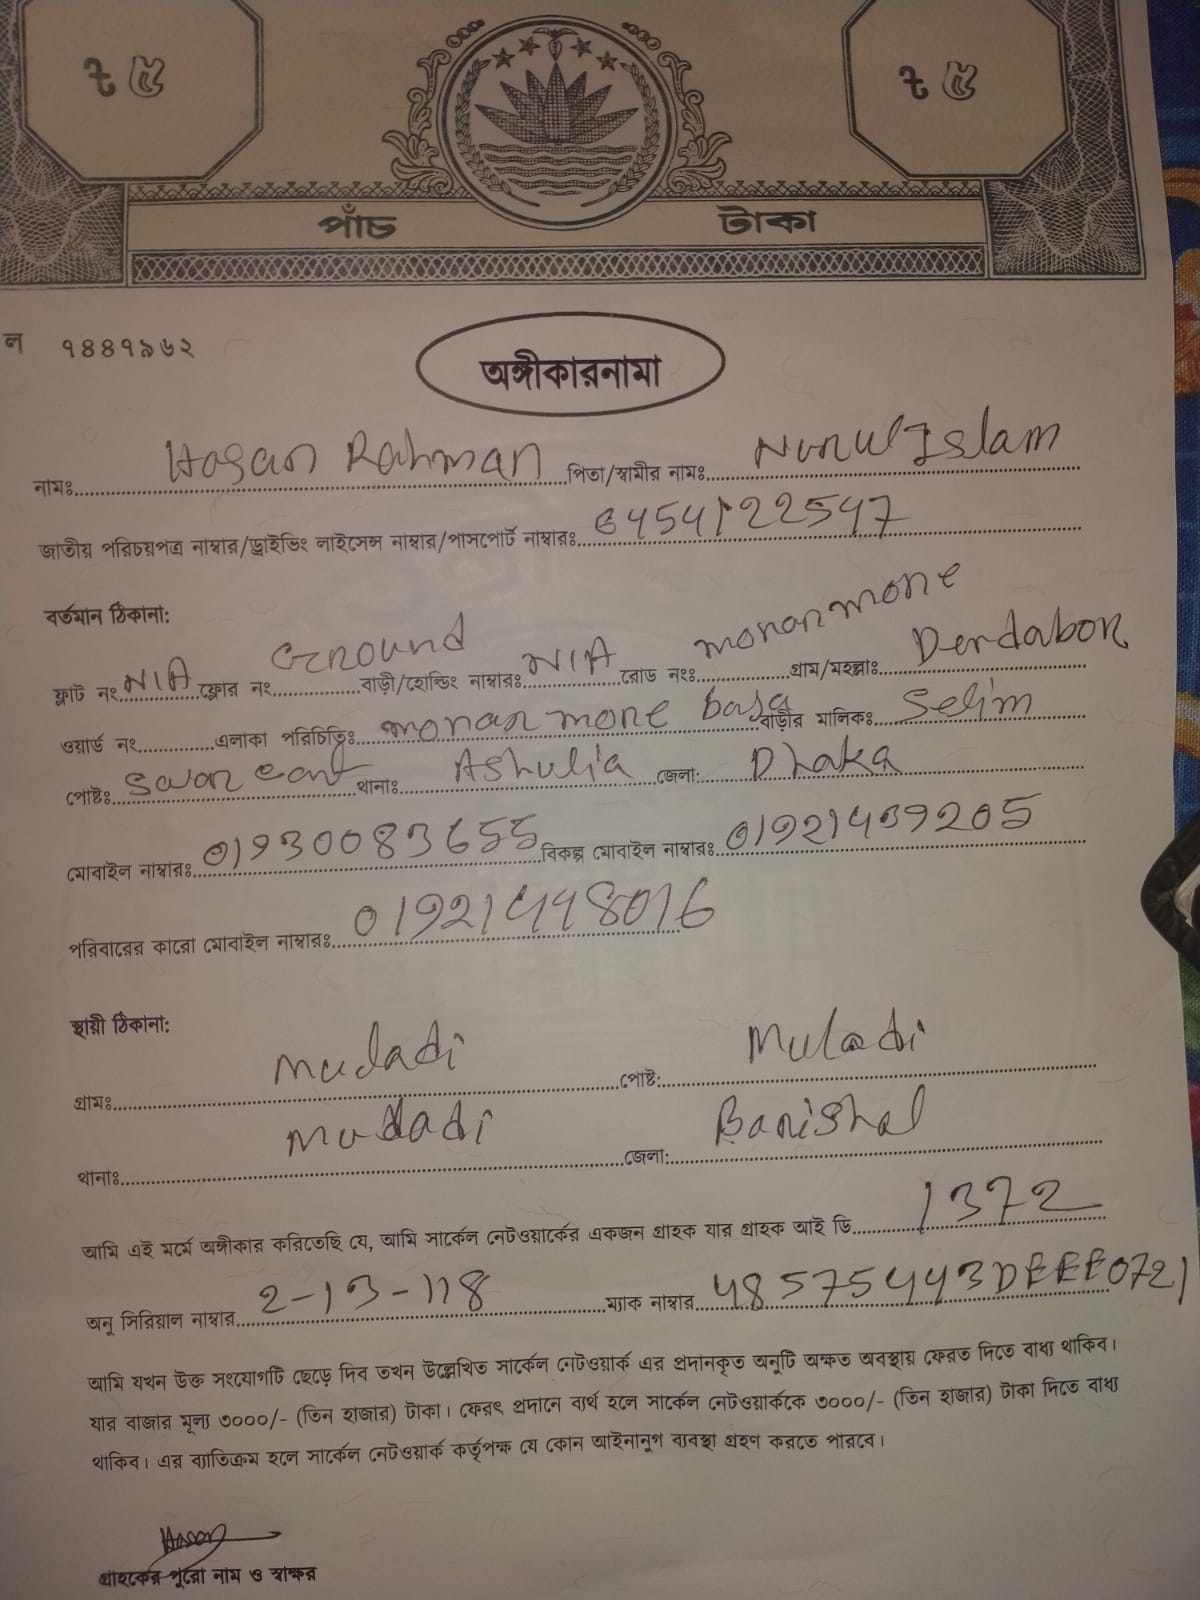 ৳ ৫ ৳ ৫
পাঁচ টাকা
ল ৭৪৪৭৯৬২
অঙ্গীকারনামা
নামঃ Hasan Rahman পিতা/স্বামীর নামঃ Nurul Islam
জাতীয় পরিচয়পত্র নাম্বার/ড্রাইভিং লাইসেন্স নাম্বার/পাসপোর্ট নাম্বারঃ 6454122547
বর্তমান ঠিকানা:
ফ্লাট নং N/A ফ্লোর নং Ground বাড়ী/হোল্ডিং নাম্বারঃ N/A রোড নংঃ monanmone গ্রাম/মহল্লাঃ Dendabor
ওয়ার্ড নং এলাকা পরিচিতিঃ monanmone basa বাড়ীর মালিকঃ Selim
পোষ্টঃ থানাঃ Ashulia জেলা: Dhaka
মোবাইল নাম্বারঃ 01930083655 বিকল্প মোবাইল নাম্বারঃ 01921439205
পরিবারের কারো মোবাইল নাম্বারঃ 01921998016
স্থায়ী ঠিকানা:
গ্রামঃ Muladi পোষ্ট: Muladi
থানাঃ Muladi জেলা: Barishal
আমি এই মর্মে অঙ্গীকার করিতেছি যে, আমি সার্কেল নেটওয়ার্কের একজন গ্রাহক যার গ্রাহক আই ডি 1372
অনু সিরিয়াল নাম্বার 2-13-118 ম্যাক নাম্বার 48575443DEEE0721
আমি যখন উক্ত সংযোগটি ছেড়ে দিব তখন উল্লেখিত সার্কেল নেটওয়ার্ক এর প্রদানকৃত অনুটি অক্ষত অবস্থায় ফেরত দিতে বাধ্য থাকিব।
যার বাজার মূল্য ৩০০০/- (তিন হাজার) টাকা। ফেরৎ প্রদানে ব্যর্থ হলে সার্কেল নেটওয়ার্ককে ৩০০০/- (তিন হাজার) টাকা দিতে বাধ্য
থাকিব। এর ব্যাতিক্রম হলে সার্কেল নেটওয়ার্ক কর্তৃপক্ষ যে কোন আইনানুগ ব্যবস্থা গ্রহণ করতে পারবে।
Hasan
গ্রাহকের পুরো নাম ও স্বাক্ষর